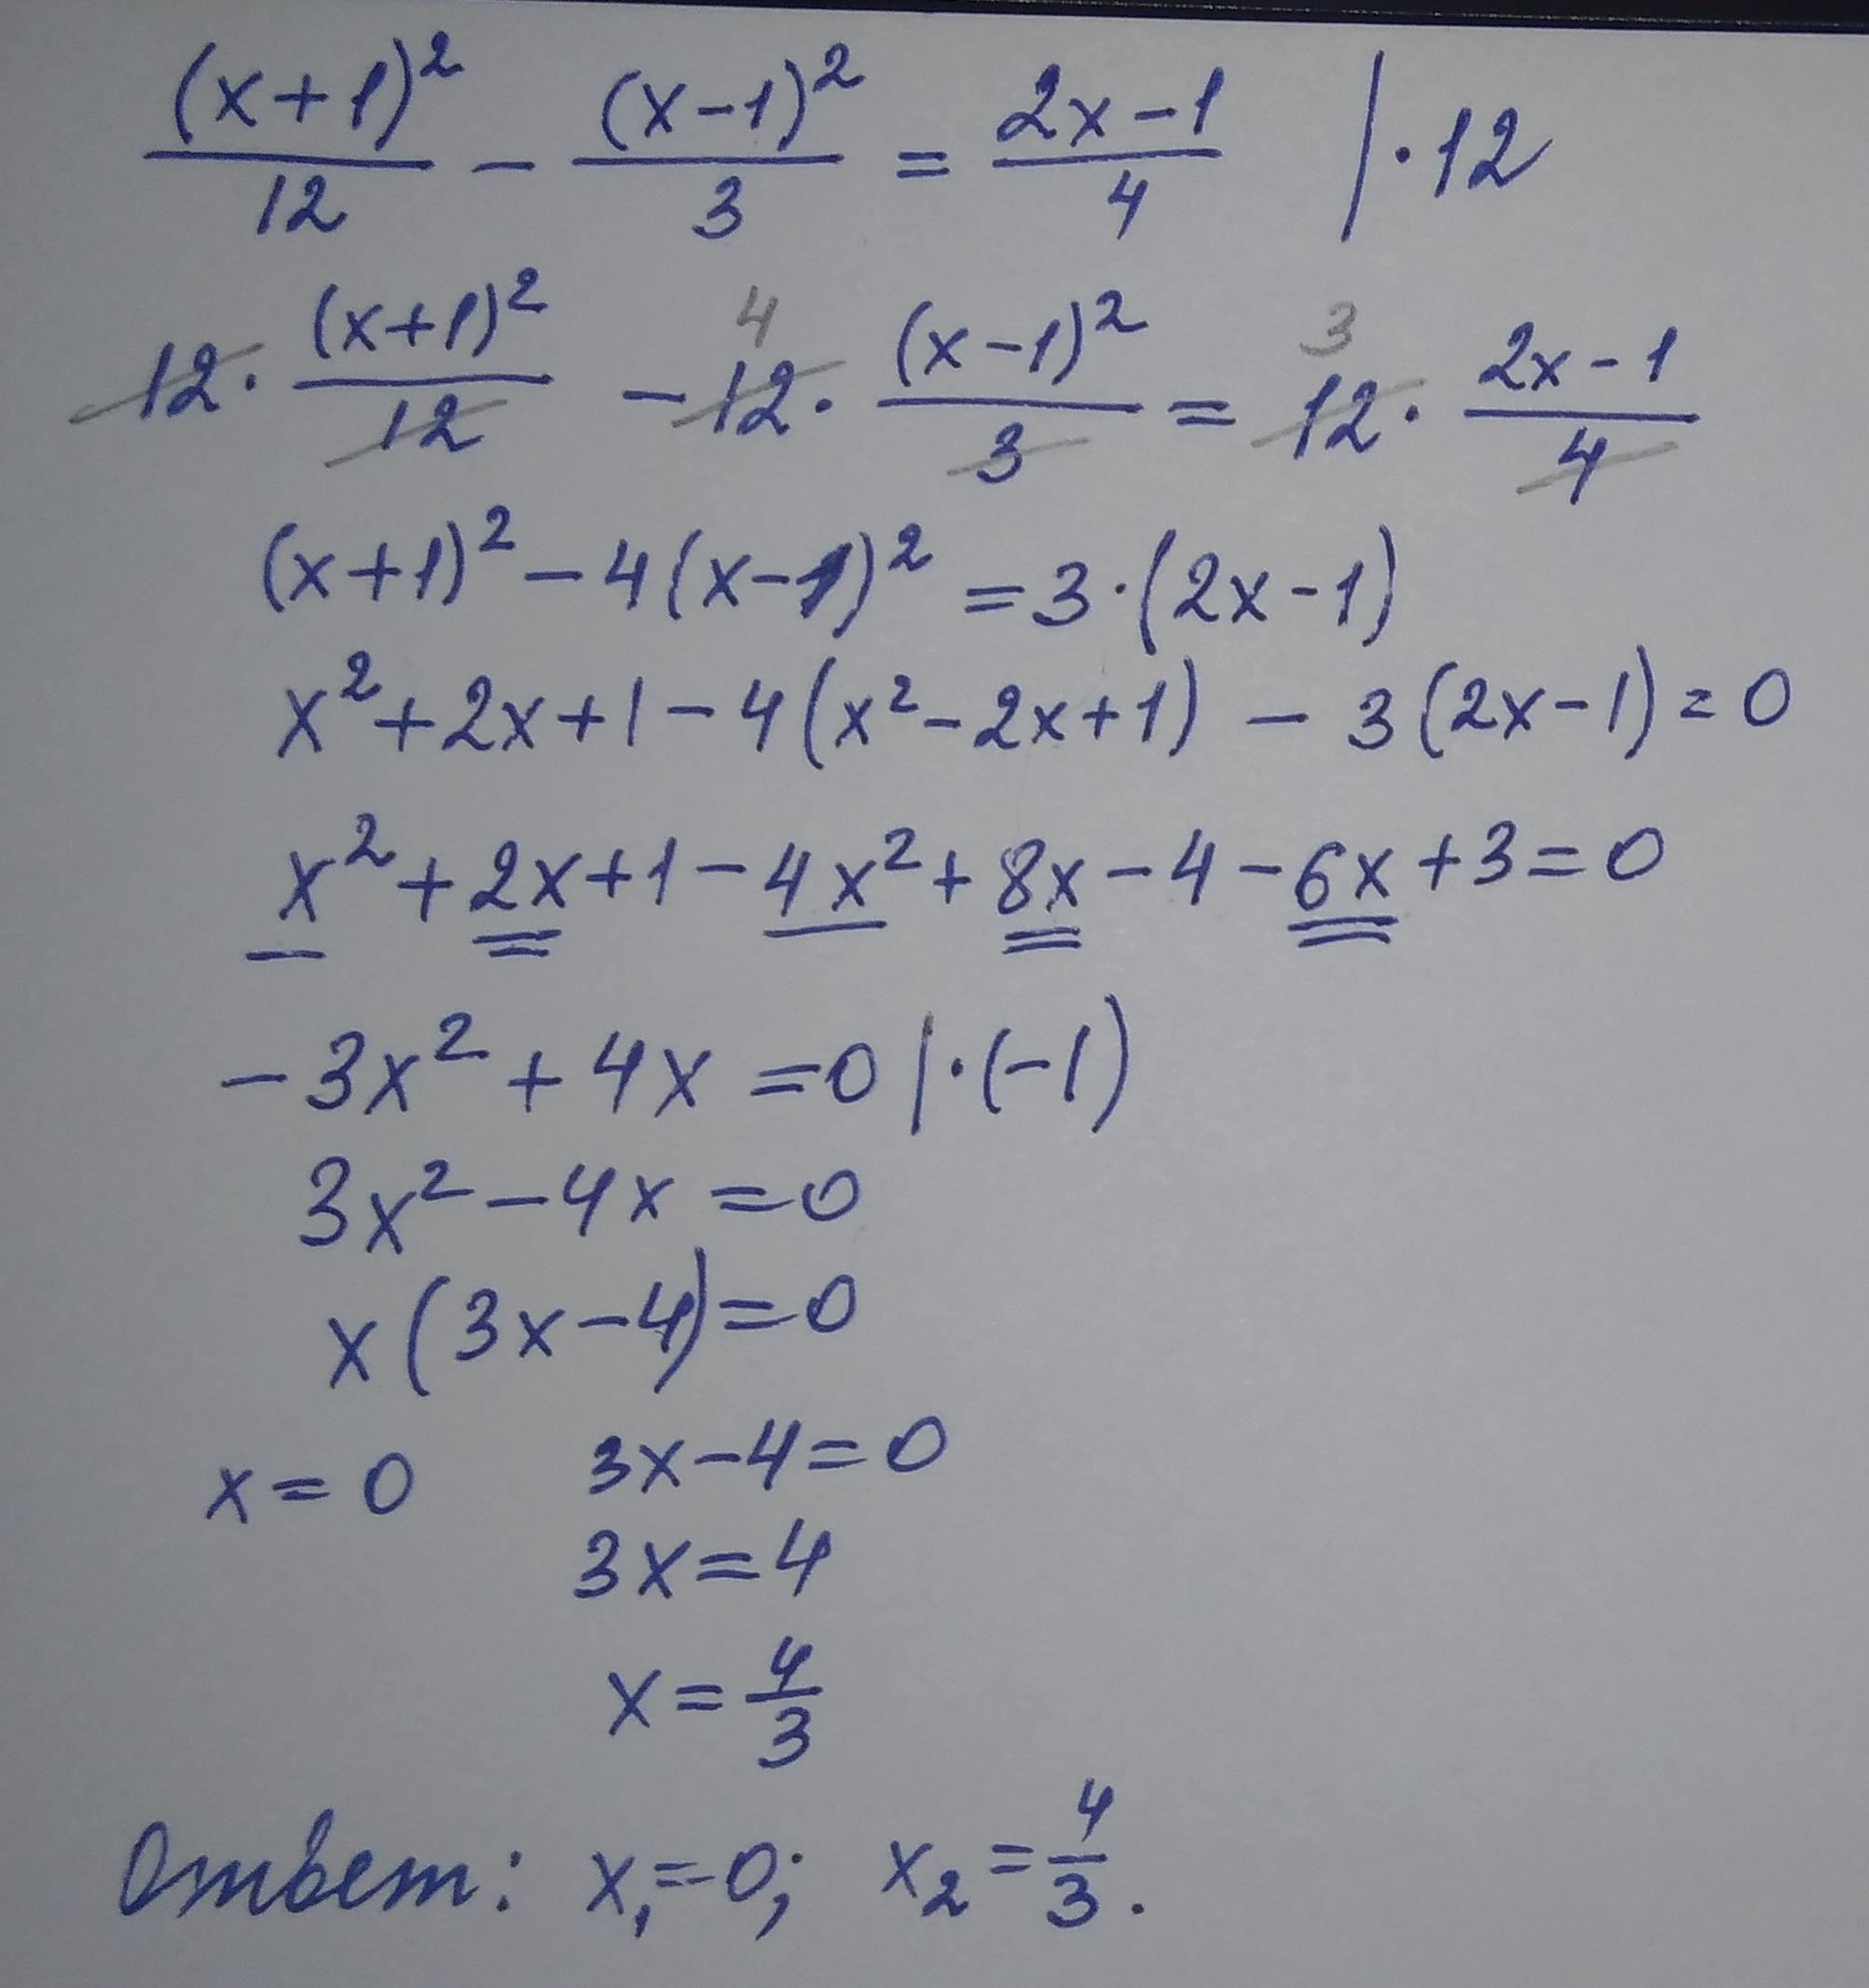 (x+1)²/12 - (x-1)²/3 = (2x-1)/4 | · 12
12 · (x+1)²/12 - 12 · (x-1)²/3 = 12 · (2x-1)/4
4 3
(x+1)² - 4(x-1)² = 3 · (2x-1)
x² + 2x + 1 - 4(x² - 2x + 1) - 3(2x-1) = 0
x² + 2x + 1 - 4x² + 8x - 4 - 6x + 3 = 0
-3x² + 4x = 0 | · (-1)
3x² - 4x = 0
x(3x-4) = 0
x = 0 3x - 4 = 0
3x = 4
x = 4/3
Ответ: x₁ = 0; x₂ = 4/3.